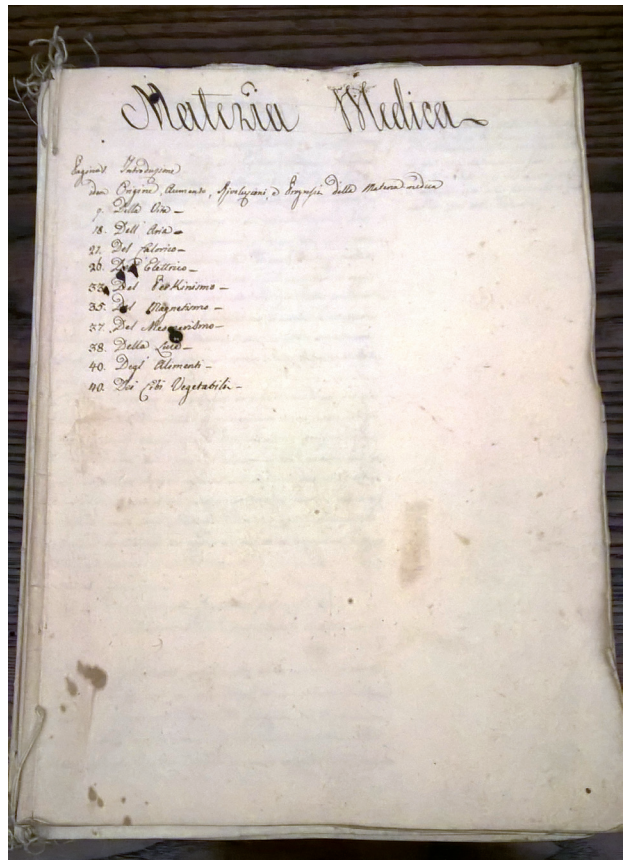 Materia Medica
Pagina 1. Introduzione
Origine, Aumento, Rivoluzioni, e Progressi della Materia medica
9. Della Vita
18. Dell' Aria
21. Del Calorico
26. Dell' Elettrico
33. Del Perkinismo
35. Del Magnetismo
37. Del Mesmerismo
38. Della Luce
40. Degl' Alimenti
40. Dei Cibi Vegetabili